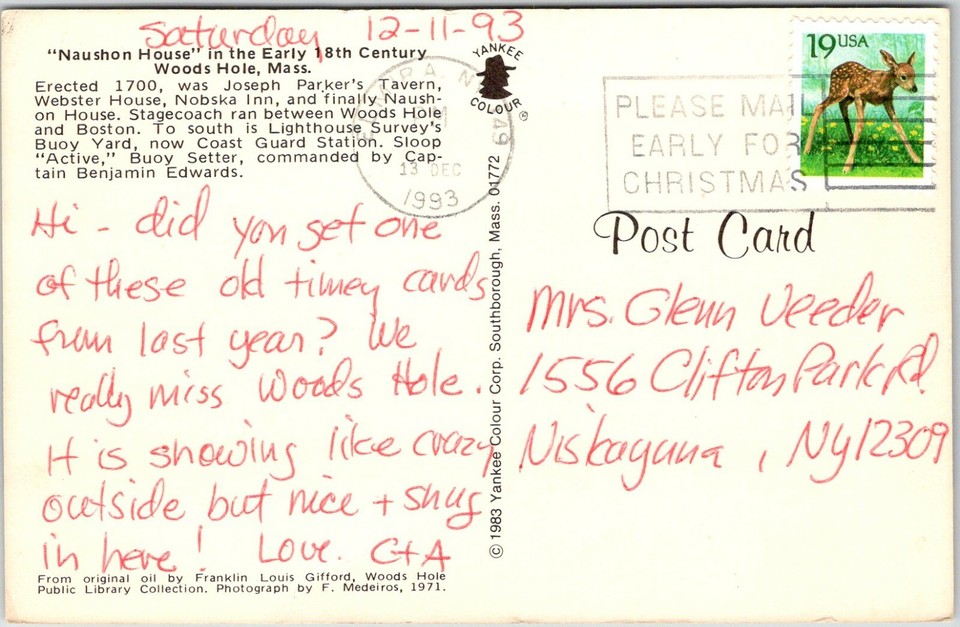 Saturday 12-11-93
"Naushon House" in the Early 18th Century
Woods Hole, Mass.
Erected 1700, was Joseph Parker's Tavern,
Webster House, Nobska Inn, and finally Naush-
on House. Stagecoach ran between Woods Hole
and Boston. To south is Lighthouse Survey's
Buoy Yard, now Coast Guard Station. Sloop
"Active," Buoy Setter, commanded by Cap-
tain Benjamin Edwards.
Hi - did you get one
of these old timey cards
from last year? We
really miss Woods Hole.
It is snowing like crazy
outside but nice + snug
in here! Love. C+A
From original oil by Franklin Louis Gifford, Woods Hole
Public Library Collection. Photograph by F. Medeiros, 1971.
YANKEE
COLOUR ®
© 1983 Yankee Colour Corp. Southborough, Mass. 01772
13 DEC
1993
PLEASE MAI
EARLY FOR
CHRISTMAS
19 USA
Post Card
Mrs. Glenn Veeder
1556 Clifton Park Rd.
Niskayuna, NY 12309